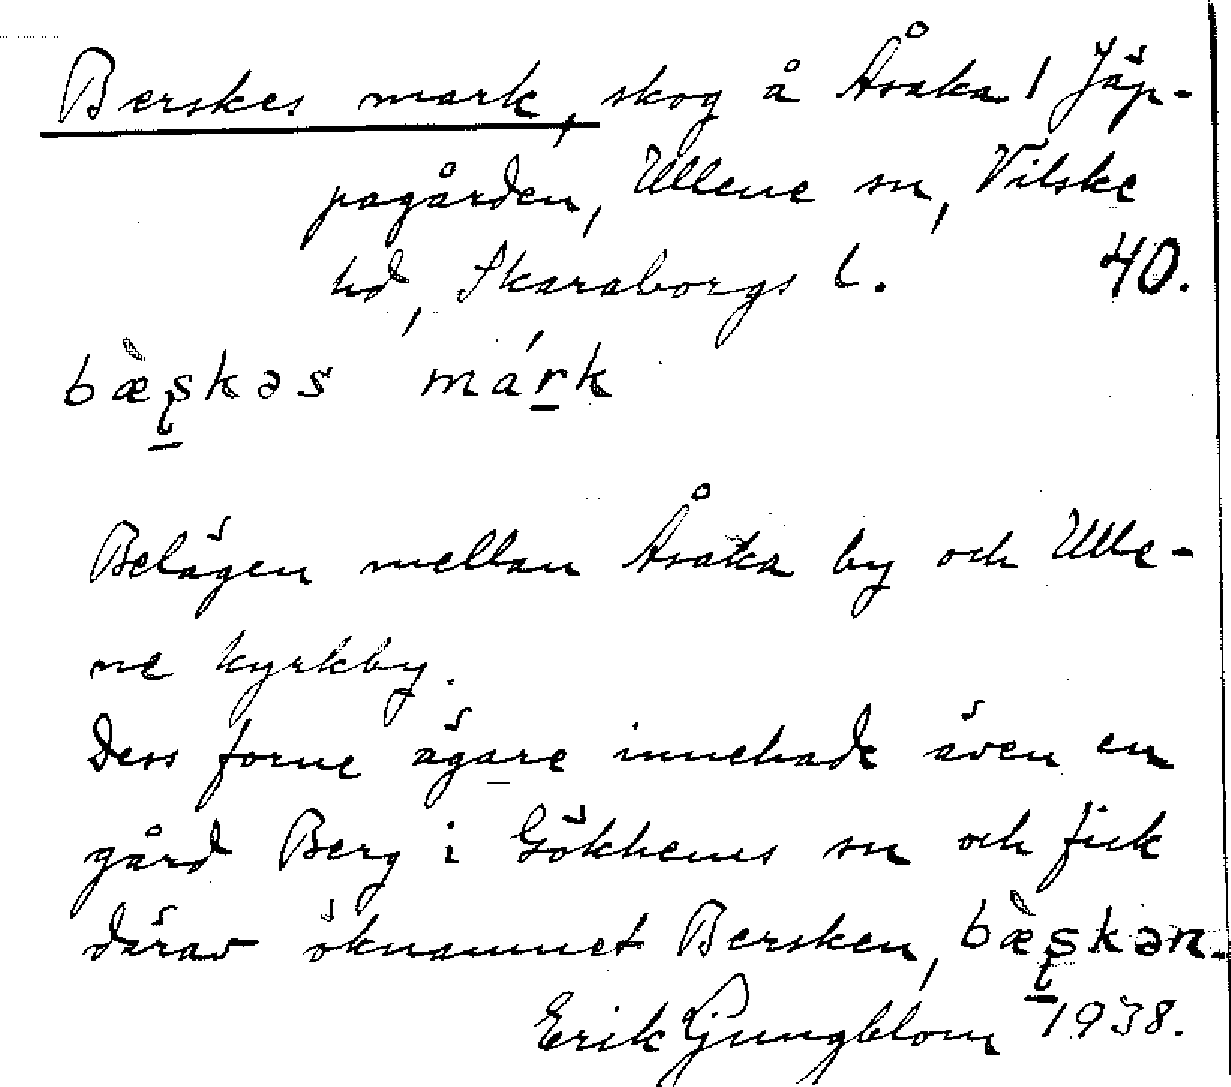 Berskes mark, skog å Åsaka 1 Jäp-
pagården, Ullene sn, Vilske
hd, Skaraborgs l. 40.
bæ̀ʂkəs márk
Belägen mellan Åsaka by och Ulle-
ne kyrkby.
Dess forne ägare innehade även en
gård Berg i Gökhems sn och fick
därav öknamnet Bersken, bæ̀ʂkən.
Erik Ljungblom 1938.